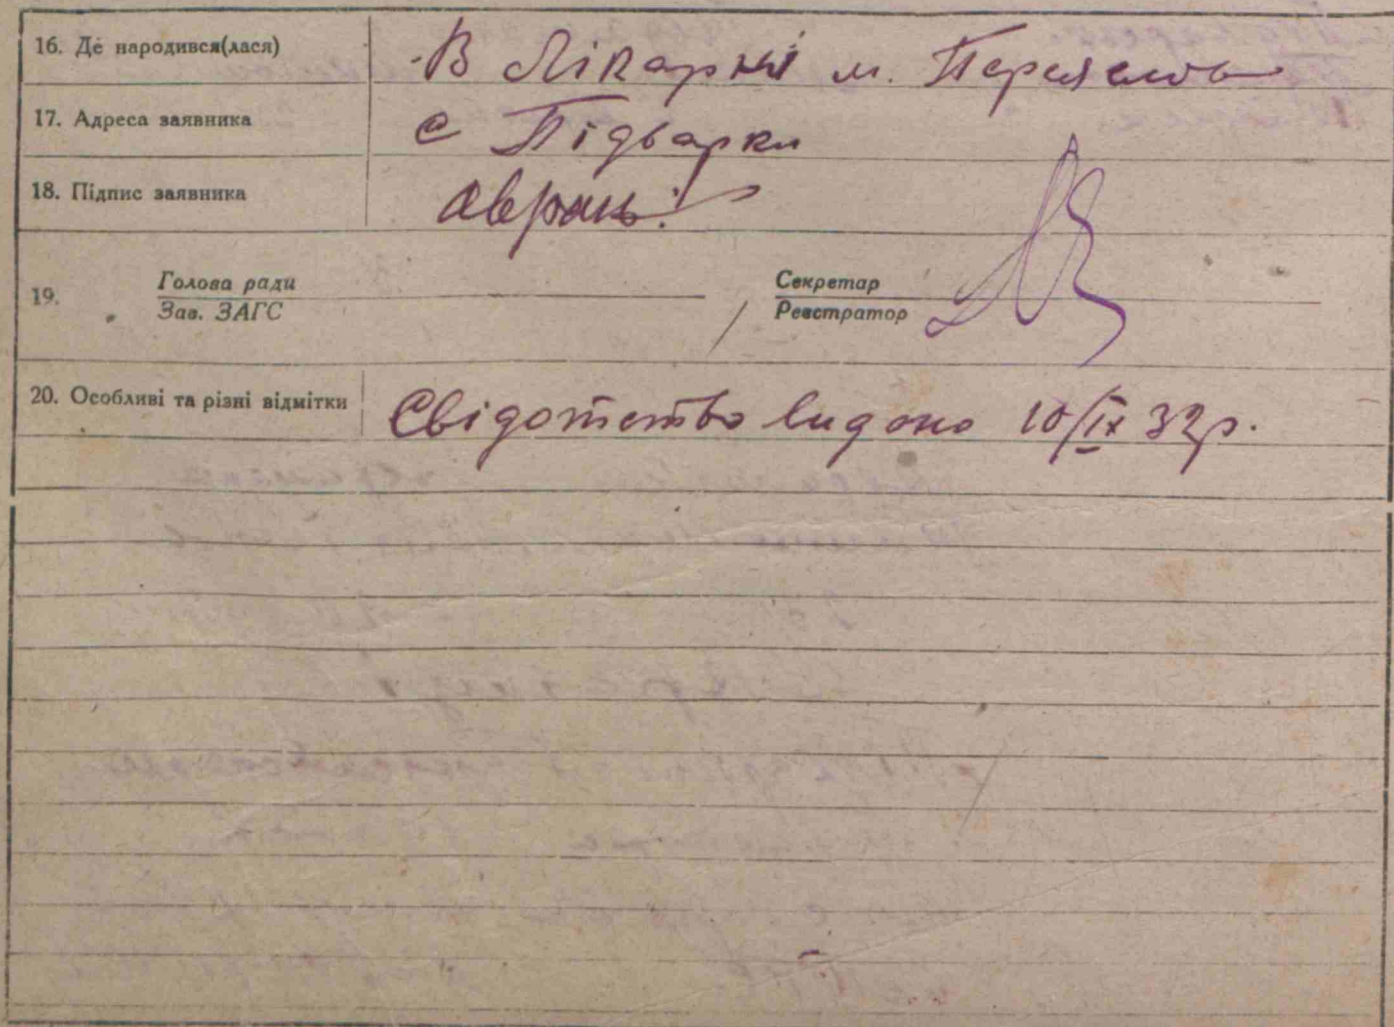 16. Де народився(лася) В Лікарні м. Переяслов
17. Адреса заявника с Підварки
18. Підпис заявника
19. Голова ради Секретар
Зав. ЗАГС Реєстратор
20. Особливі та різні відмітки Свідотство видано 10/IX 32р.